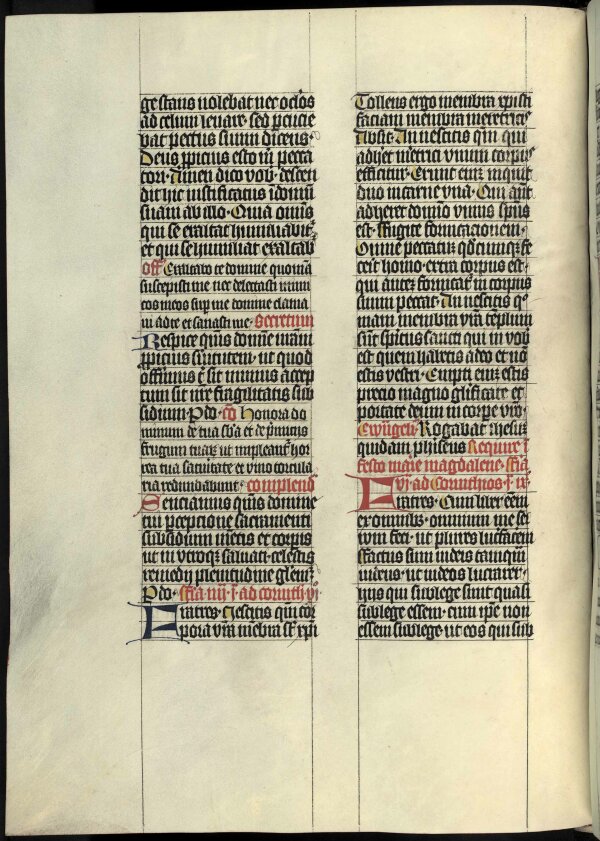 ge stans nolebat nec oclos
ad celum leuare· sed pcucie
bat pectus suum dicens·
Deus ppicius esto m̄ pecca
tori· Amen dico vob· descen
dit hic iustificatus ī domū
suam ab illo· Quia omīs
qui se exaltat humiliabit̄
et qui se humiliat exaltab
off Exaltabo te domine quoniā
suscepisti me nec delectasti inimi
cos meos sup me domine clama
ui ad te et sanasti me· Secretum
Respice q̄s dom̄e nr̄am
ppicius s̄uitutem· ut quod
offerimus t̄ sit munus accep
tum sit nr̄e fragilitatis sub
sidium Pdo· Co Honora do
minum de tua sb̄a et de p̄miciis
frugum tuaꝝ ut impleant̄ hor
rea tua saturitate et vino torcula
ria redundabunt· complend
Senciamus q̄s domine
tui pcepcione sacramenti
subsidium mentis et corpis
ut in vtroqꝫ saluati· celestis
remedij plenitudine glem̄·
Pdo· ffr̄a iiij· ī ad corinth vi
Fratres· Nescitis qm̄ cor
pora vr̄a mēbra st̄ xp̄i
Tollens ergo membra xp̄isti
faciam membra meretricꝭ
Absit· An nescitis qm̄ qui
adh̓et m̓etrici vnum corpꝰ
efficitur· Erunt enī inquit
duo in carne vna· Qui aut̄
adheret domīo vnus sp̄us
est· ffugite fornicacionem·
Omne peccatū qd̄cumqꝫ fe
cerit homo· extra corpus est·
qui autē fornicat̄ in corpus
suum peccat· An nescitis qꝰ
niam membra vr̄a templum
sunt sp̄iritus sancti qui in vob̄
est quem habetis a deo et nō
estis vestri· Empti enī estis
precio magno glificate et
portate deum in corpe vr̄o·
Ewn̄geli· Rogabat ihesum
quidam phiseus Require ī
festo marie magdalene· ffr̄a
vj· ad Corinthios· ī· ix
Fratres· Cum liber essem
ex omnibꝫ· omnium me ser
uum feci· ut plures luc̓facerem
ffactus sum iudeis tamqm̄
iudeus· ut iudeos lucrarer·
hijs qui sub lege sunt quasi
sub lege essem· cum ip̄e non
essem sub lege· ut eos qui sub